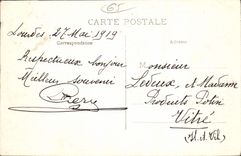 CARTE POSTALE
Lourdes 27 Mai 1919
Correspondance
Adresse
Respectueux bonjour
Meilleur souvenir
Pierre
Monsieur
Ledeux, et Madame
Produits Potin
Vitré
(I. et Vil.)